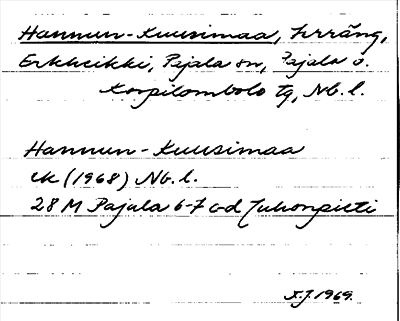 Hannun-Kuusimaa, terräng,
Erkheikki, Pajala sn, Pajala o.
Korpilombolo tg, Nb. l.
Hannun-Kuusimaa
ek (1968) Nb. l.
28 M Pajala 6-7 c-d Juhonpieti
1969.